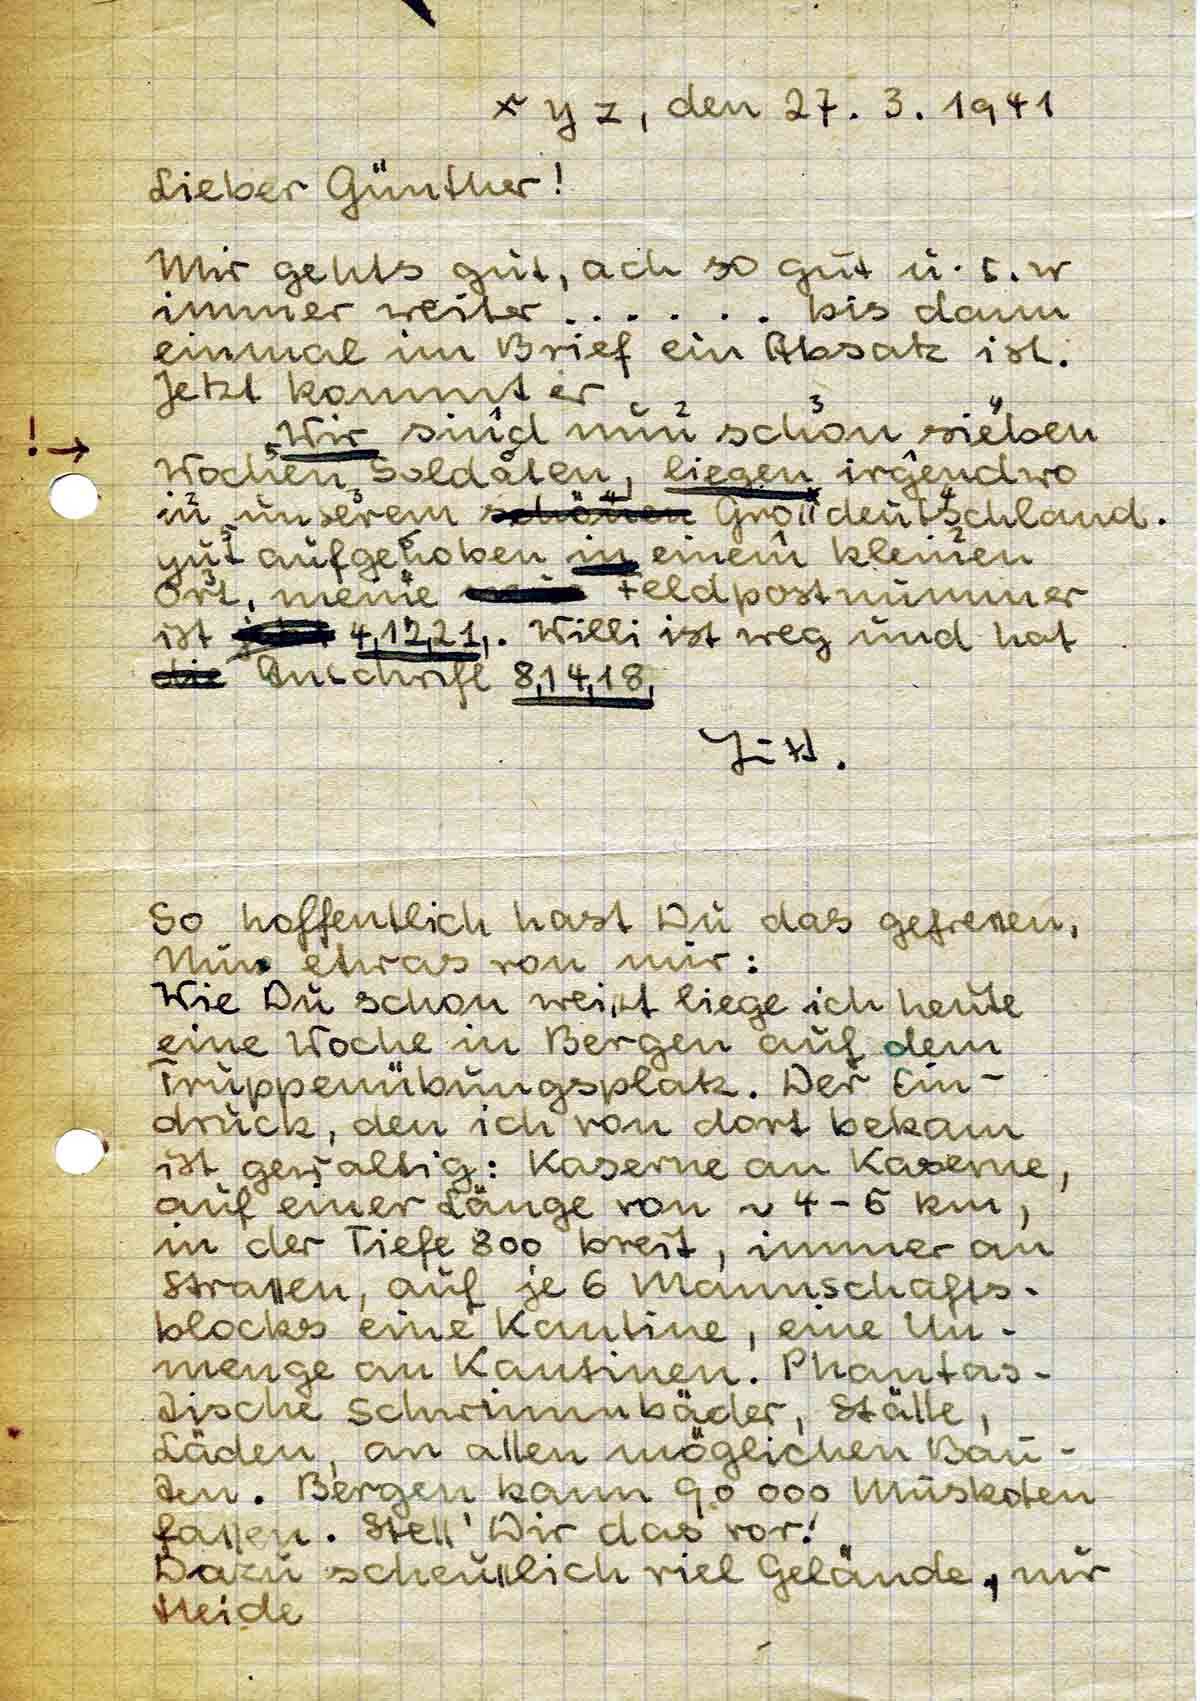 x y z, den 27. 3. 1941
Lieber Günther!
Mir gehts gut, ach so gut u. s. w
immer weiter . . . . . . bis dann
einmal im Brief ein Absatz ist.
Jetzt kommt er
! → Wir sind nun schon sieben
Wochen Soldaten, liegen irgendwo
in unserem schönen Großdeutschland.
gut aufgehoben in einem kleinen
Ort, meine Feldpostnummer
ist 4,12,21,. Willi ist weg und hat
die Anschrift 8,14,18,
So hoffentlich hast Du das gefressen,
Nun etwas von mir:
Wie Du schon weißt liege ich heute
eine Woche in Bergen auf dem
Truppenübungsplatz. Der Ein-
druck, den ich von dort bekam
ist gewaltig: Kaserne an Kaserne,
auf einer Länge von ~ 4-5 km,
in der Tiefe 800 breit, immer an
Straßen, auf je 6 Mannschafts-
blocks eine Kantine, eine Un-
menge an Kantinen. Phantas-
tische Schwimmbäder, Ställe,
Läden, an allen möglichen Bau-
ten. Bergen kann 90 000 Muskoten
fassen. Stell' Dir das vor!
Dazu scheußlich viel Gelände, nur
Heide